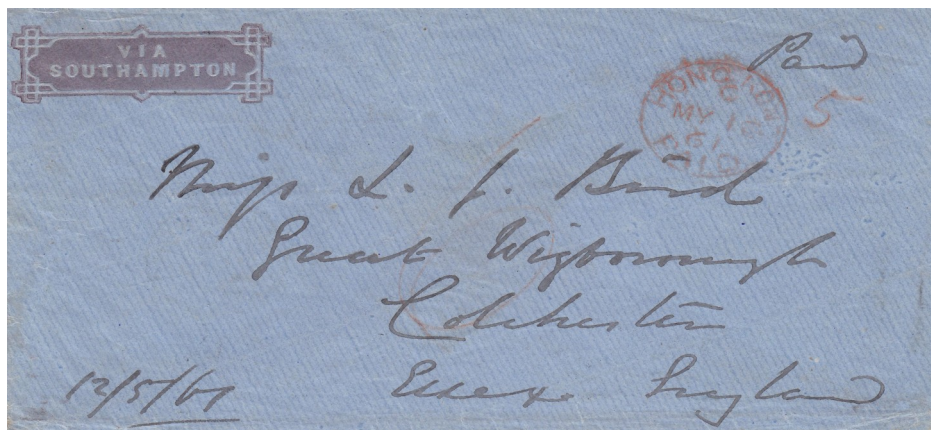 VIA
SOUTHAMPTON
Paid
HONG KONG
C
MY 16
61
PAID
5
Miss L. J. Bird
Great Wigborough
Colchester
Essex England
12/5/61